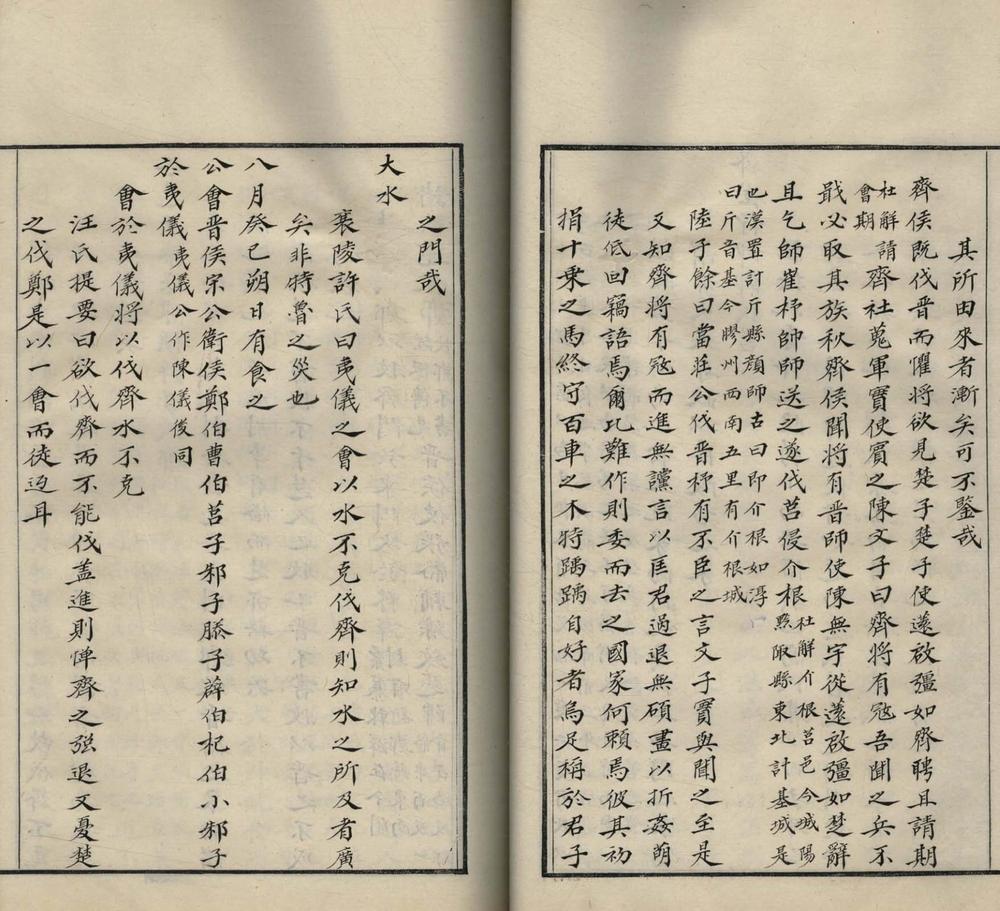 其所由來者漸矣可不鑒哉
齊侯既伐晋而懼將欲見楚子楚子使薳啟彊如齊聘且請期
杜解請會期齊社蒐軍實使客觀之陳文子曰齊將有宼吾聞之兵不
戢必取其族秋齊侯聞將有晋師使陳無宇從薳啟彊如楚辭
且乞師崔杼帥師送之遂伐莒侵介根杜解介根莒邑今城陽黔陬縣東北計基城是
也漢置計斤縣顔師古曰即介根如淳曰斤音基今膠州西南五里有介根城
陸子餘曰當莊公伐晋杼有不臣之言文子實與聞之至是
又知齊將有宼而進無讜言以匡君過退無碩畫以折姦萌
徒低回竊語焉爾比難作則委而去之國家何賴焉彼其初
捐十乘之馬終守百車之木特踽踽自好者烏足稱於君子
之門哉
大水
襄陵許氏曰夷儀之會以水不克伐齊則知水之所及者廣
矣非特魯之災也
八月癸巳朔日有食之
公會晋侯宋公衛侯鄭伯曹伯莒子邾子滕子薛伯杞伯小邾子
於夷儀夷儀公作陳儀後同
會於夷儀將以伐齊水不克
汪氏提要曰欲伐齊而不能伐蓋進則憚齊之强退又憂楚
之伐鄭是以一會而徒返耳